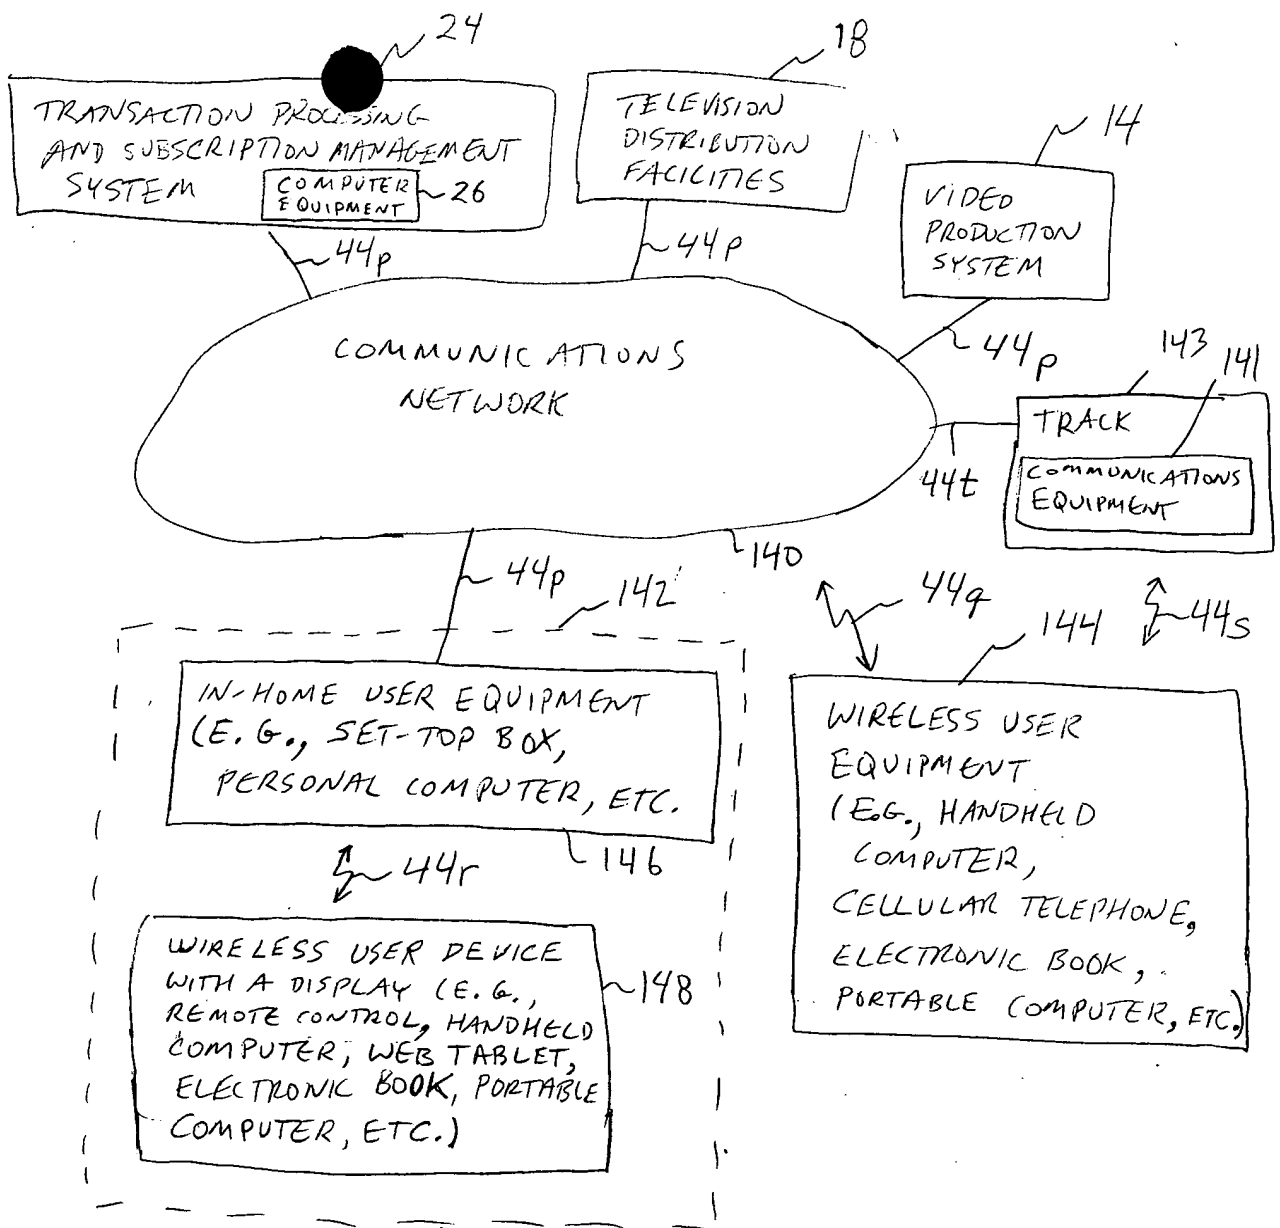 24
18
TRANSACTION PROCESSING
AND SUBSCRIPTION MANAGEMENT
SYSTEM
COMPUTER
EQUIPMENT
26
TELEVISION
DISTRIBUTION
FACILITIES
14
VIDEO
PRODUCTION
SYSTEM
44p
44p
44p
COMMUNICATIONS
NETWORK
143
141
TRACK
COMMUNICATIONS
EQUIPMENT
44t
140
44p
142
44q
144
44s
IN-HOME USER EQUIPMENT
(E.G., SET-TOP BOX,
PERSONAL COMPUTER, ETC.
146
44r
WIRELESS USER DEVICE
WITH A DISPLAY (E.G.,
REMOTE CONTROL, HANDHELD
COMPUTER, WEB TABLET,
ELECTRONIC BOOK, PORTABLE
COMPUTER, ETC.)
148
WIRELESS USER
EQUIPMENT
(E.G., HANDHELD
COMPUTER,
CELLULAR TELEPHONE,
ELECTRONIC BOOK,
PORTABLE COMPUTER, ETC.)